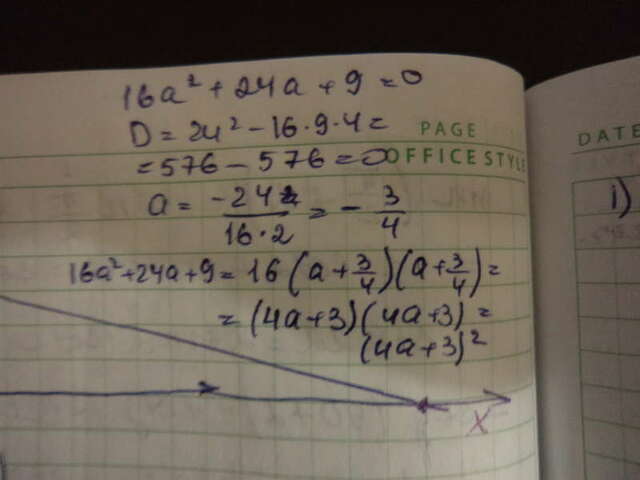 16a² + 24a + 9 = 0
D = 24² - 16·9·4 =
PAGE
= 576 - 576 = 0
OFFICE STYLE
DATE
a = -24/16·2 = - 3/4
1)
16a²+24a+9 = 16(a+3/4)(a+3/4) =
= (4a+3)(4a+3) =
(4a+3)²
X